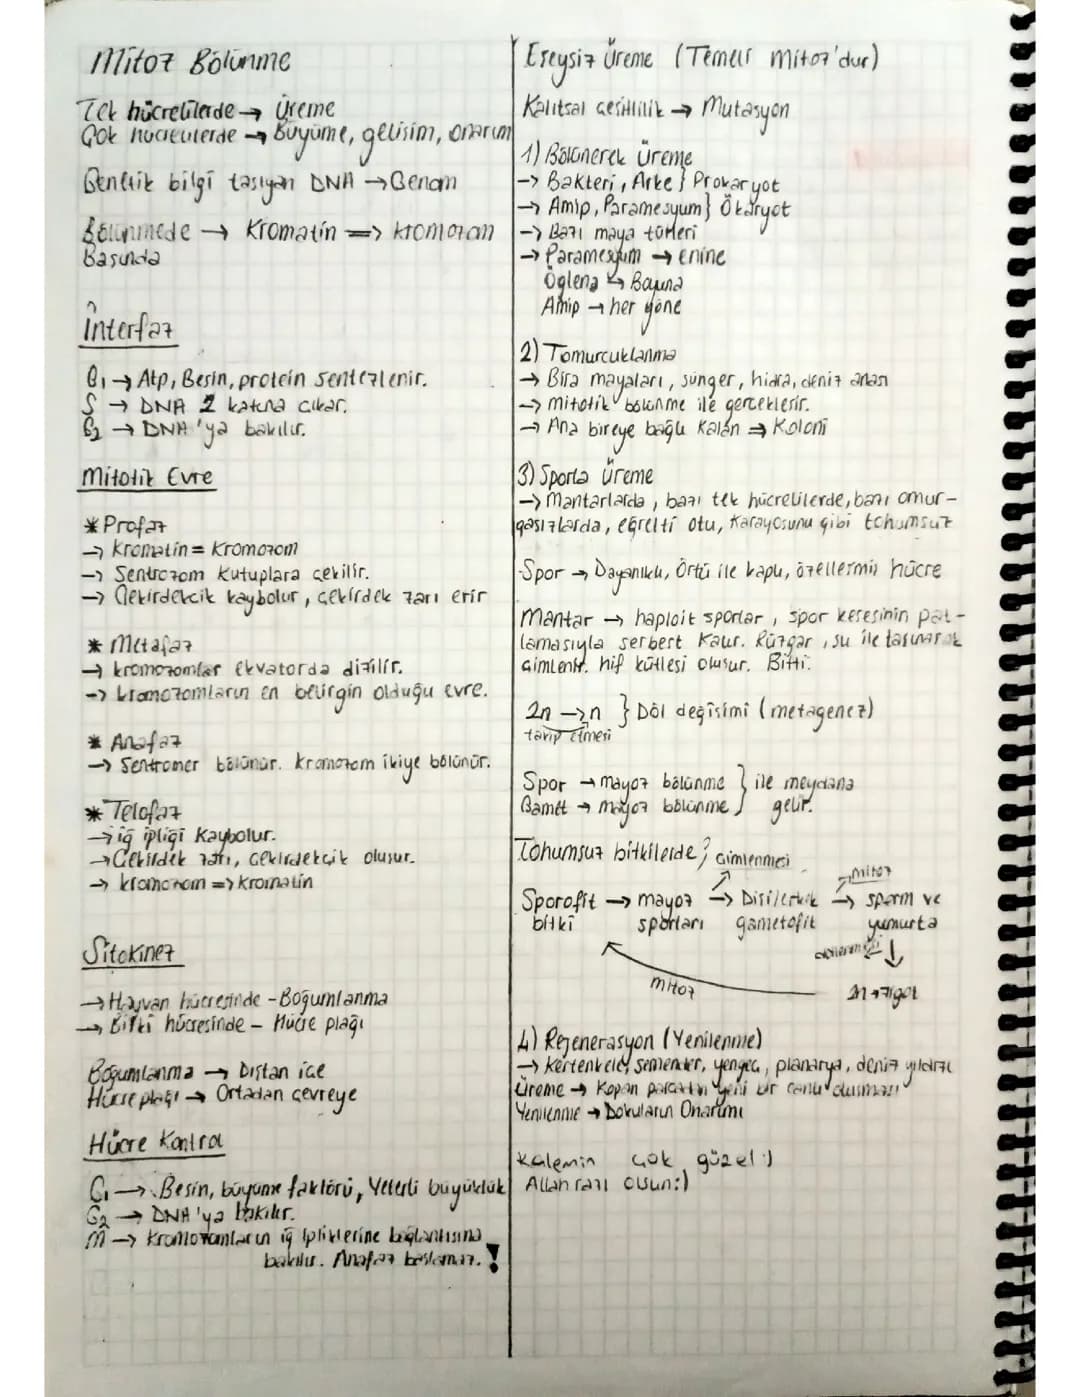 Mitoz Bölünme
Tek hücrelilerde → Üreme
Çok hücrelilerde → Büyüme, gelişim, onarım
Genetik bilgi taşıyan DNA → Genom
Bölünmede → Kromatin => kromozom
Başında
İnterfaz
G1 → Atp, Besin, protein sentezlenir.
S → DNA 2 katına çıkar.
G2 → DNA'ya bakılır.
Mitotik Evre
* Profaz
→ Kromatin = Kromozom
→ Sentrozom Kutuplara çekilir.
→ Çekirdekcik kaybolur, çekirdek zarı erir
* Metafaz
→ kromozomlar ekvatorda dizilir.
→ kromozomların en belirgin olduğu evre.
* Anafaz
→ Sentromer bölünür. kromozom ikiye bölünür.
* Telofaz
→ iğ ipliği Kaybolur.
→ Çekirdek zarı, çekirdekçik oluşur.
→ kromozom => Kromatin
Sitokinez
→ Hayvan hücresinde - Boğumlanma
→ Bitki hücresinde - Hücre plağı
Boğumlanma → Dıştan içe
Hücre plağı → Ortadan çevreye
Hücre Kontrol
G1 → Besin, büyüme faktörü, Yeterli büyüklük
G2 → DNA'ya bakılır.
M → Kromozomların iğ ipliklerine bağlantısına
bakılır. Anafaz başlamaz.!
Eşeysiz Üreme (Temeli Mitoz'dur)
Kalıtsal çeşitlilik → Mutasyon
1) Bölünerek Üreme
→ Bakteri, Arke } Prokaryot
→ Amip, Paramesyum } Ökaryot
→ Bazı maya türleri
→ Paramesyum → enine
Öglena ↳ Boyuna
Amip → her yöne
2) Tomurcuklanma
→ Bira mayaları, sünger, hidra, deniz anası
→ mitotik bölünme ile gerçekleşir.
→ Ana bireye bağlı Kalan => Koloni
3) Sporla Üreme
→ Mantarlarda, bazı tek hücrelilerde, bazı omur-
gasızlarda, eğrelti otu, karayosunu gibi tohumsuz
Spor → Dayanıklı, Örtü ile kaplı, özelleşmiş hücre
Mantar → haploit sporlar, spor kesesinin pat-
lamasıyla serbest Kalır. Rüzgar, su ile taşınarak
çimlenir. hif kütlesi oluşur. Bitti.
2n → n } Döl değişimi (metagenez)
takip etmesi
Spor → mayoz bölünme } ile meydana
Gamet → mayoz bölünme } gelir.
Tohumsuz bitkilerde; çimlenmesi
mitoz
Sporofit → mayoz → Dişi/erkek → sperm ve
bitki sporları gametofit yumurta
döllenmesi ↓
mitoz 2n → zigot
4) Rejenerasyon (Yenilenme)
→ Kertenkele, semender, yengeç, planarya, deniz yıldızı
Üreme → Kopan parçadan yeni bir canlı oluşması
Yenilenme → Dokuların Onarımı
Kalemin çok güzel :)
Allah razı olsun :)